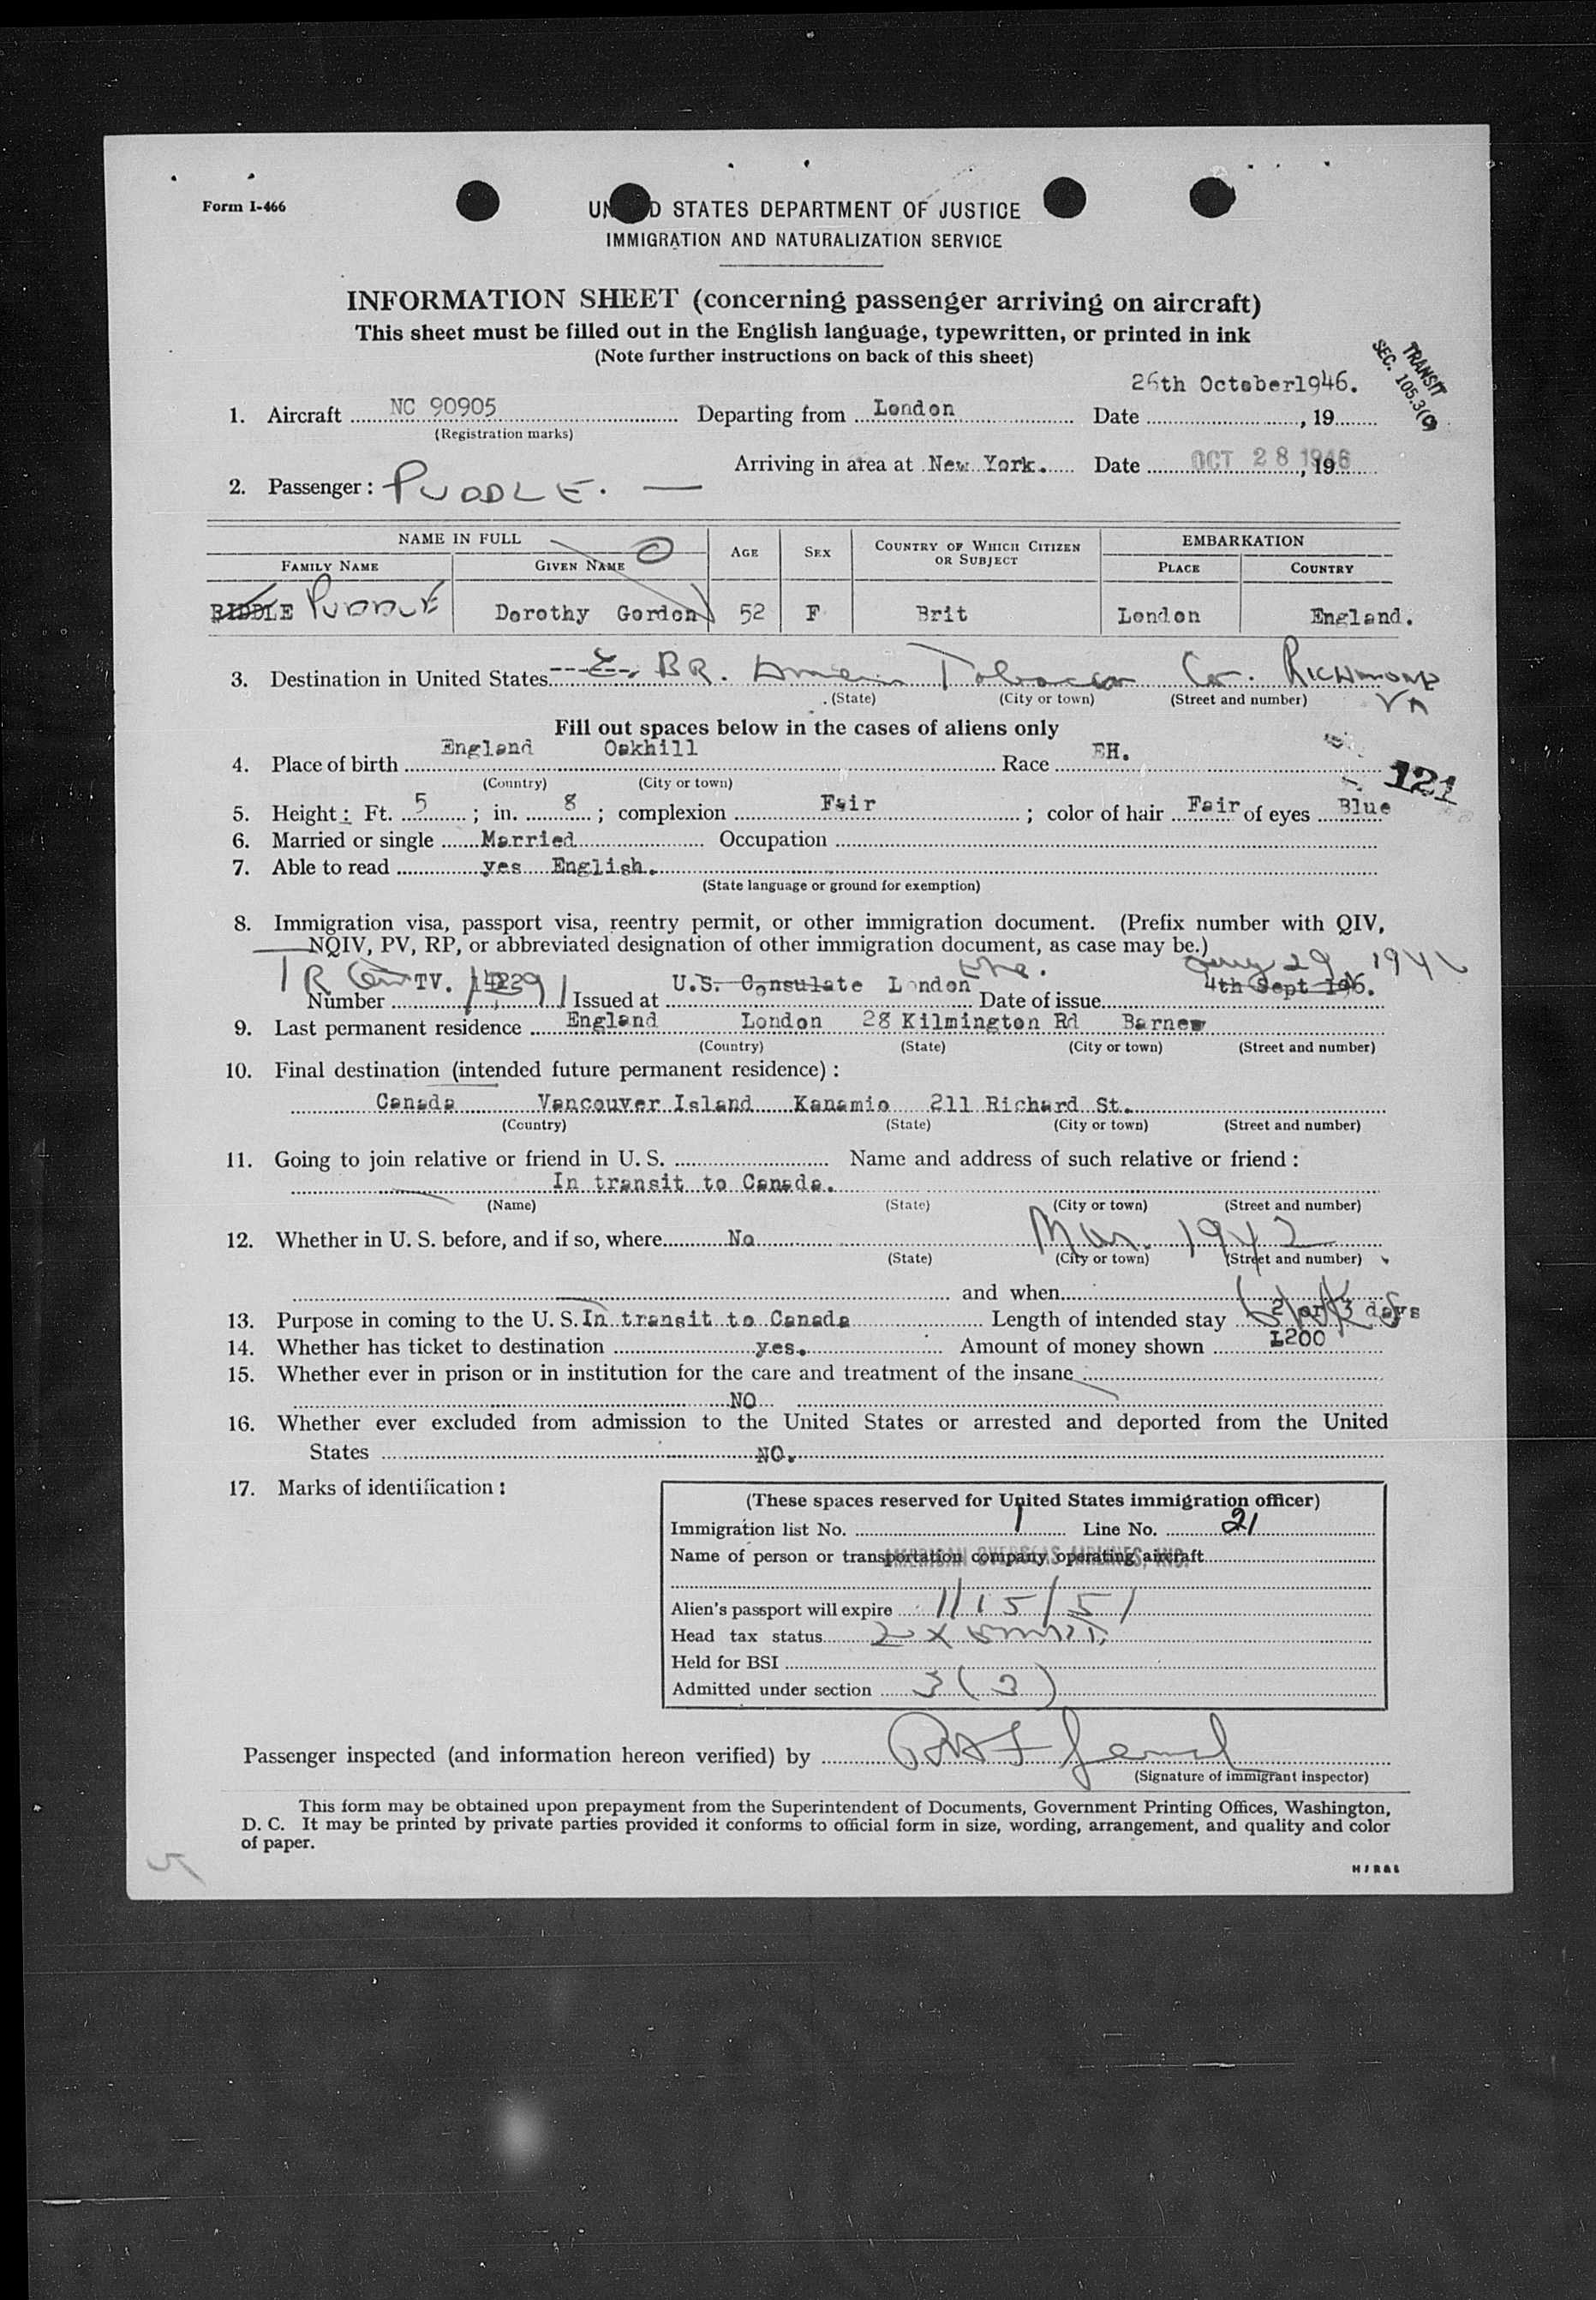 Form I-466
UN D STATES DEPARTMENT OF JUSTICE
IMMIGRATION AND NATURALIZATION SERVICE
INFORMATION SHEET (concerning passenger arriving on aircraft)
This sheet must be filled out in the English language, typewritten, or printed in ink
(Note further instructions on back of this sheet)
TRANSIT
SEC. 105.3(C)
26th October1946.
1. Aircraft NC 90905 Departing from London Date , 19
(Registration marks)
Arriving in area at New York. Date OCT 28 1946, 19
2. Passenger: PUDDLE. —
NAME IN FULL AGE SEX COUNTRY OF WHICH CITIZEN OR SUBJECT EMBARKATION
FAMILY NAME GIVEN NAME PLACE COUNTRY
RIDDLE PUDDLE Dorothy Gordon 52 F Brit London England.
3. Destination in United States BR. Tobacco Co. RICHMOND VA
(State) (City or town) (Street and number)
Fill out spaces below in the cases of aliens only
4. Place of birth England Oakhill Race EH.
(Country) (City or town)
121
5. Height: Ft. 5; in. 8; complexion Fair; color of hair Fair of eyes Blue
6. Married or single Married Occupation
7. Able to read yes English.
(State language or ground for exemption)
8. Immigration visa, passport visa, reentry permit, or other immigration document. (Prefix number with QIV,
NQIV, PV, RP, or abbreviated designation of other immigration document, as case may be.)
TR TV. U.S. Consulate London 29 4th Sept
Number Issued at Date of issue
9. Last permanent residence England London 28 Kilmington Rd Barnes
(Country) (State) (City or town) (Street and number)
10. Final destination (intended future permanent residence):
Canada Vancouver Island Kanamio 211 Richard St.
(Country) (State) (City or town) (Street and number)
11. Going to join relative or friend in U. S. Name and address of such relative or friend:
In transit to Canada.
(Name) (State) (City or town) (Street and number)
12. Whether in U. S. before, and if so, where No Mar. 1942
(State) (City or town) (Street and number)
and when
13. Purpose in coming to the U. S. In transit to Canada Length of intended stay 2 or 3 days
14. Whether has ticket to destination yes. Amount of money shown £200
15. Whether ever in prison or in institution for the care and treatment of the insane
NO
16. Whether ever excluded from admission to the United States or arrested and deported from the United
States NO.
17. Marks of identification:
(These spaces reserved for United States immigration officer)
Immigration list No. 1 Line No. 21
Name of person or transportation company operating aircraft
AMERICAN OVERSEAS AIRLINES, INC.
Alien's passport will expire 1/15/51
Head tax status
Held for BSI
Admitted under section 3(3)
Passenger inspected (and information hereon verified) by
(Signature of immigrant inspector)
This form may be obtained upon prepayment from the Superintendent of Documents, Government Printing Offices, Washington,
D. C. It may be printed by private parties provided it conforms to official form in size, wording, arrangement, and quality and color
of paper.